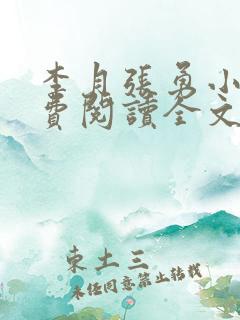 李月張勇小
費閱讀全文
東土三
未經同意禁止轉載